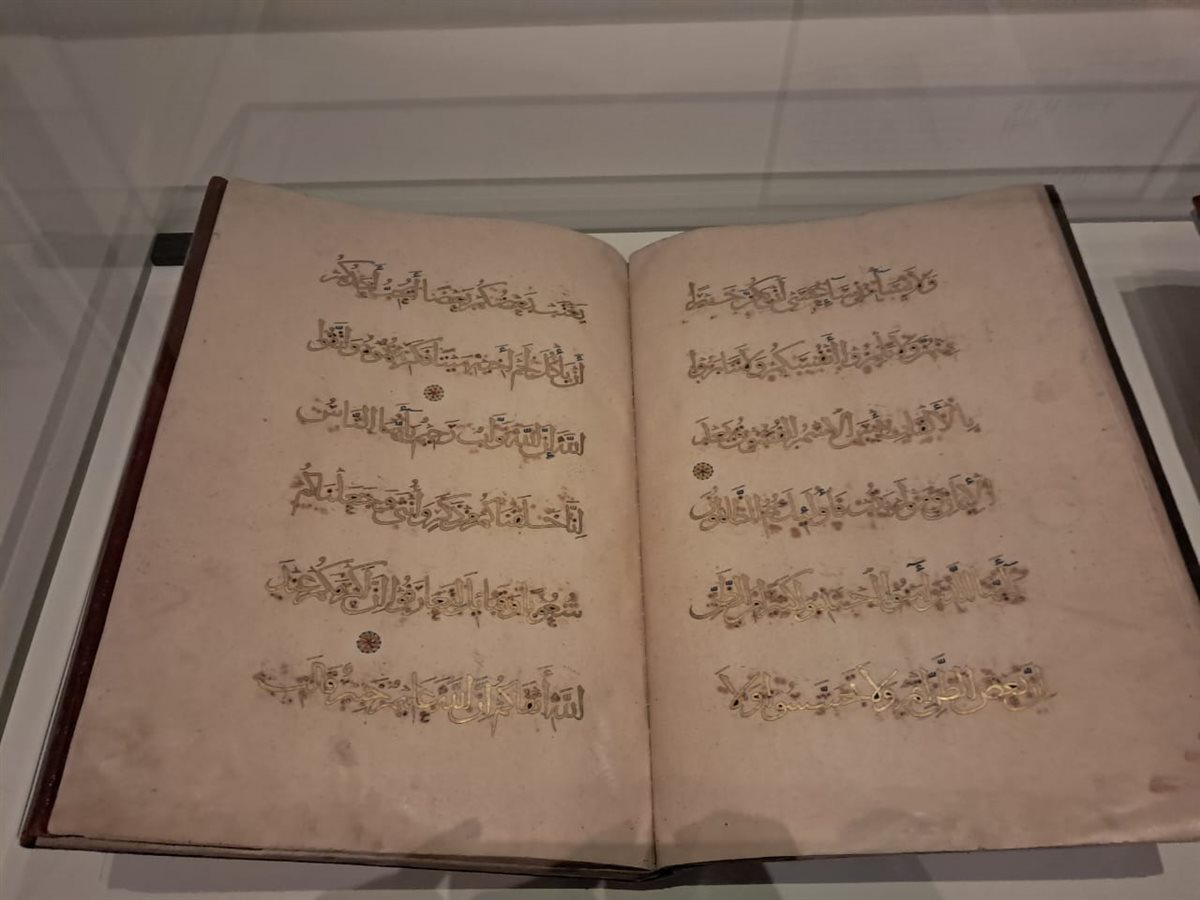 وَلَا نِسَاءٌ مِنْ نِسَاءٍ عَسَى أَنْ يَكُنَّ خَيْرًا
مِنْهُنَّ وَلَا تَلْمِزُوا أَنْفُسَكُمْ وَلَا تَنَابَزُوا
بِالْأَلْقَابِ بِئْسَ الِاسْمُ الْفُسُوقُ بَعْدَ
الْإِيمَانِ وَمَنْ لَمْ يَتُبْ فَأُولَئِكَ هُمُ الظَّالِمُونَ
يَا أَيُّهَا الَّذِينَ آمَنُوا اجْتَنِبُوا كَثِيرًا مِنَ الظَّنِّ
إِنَّ بَعْضَ الظَّنِّ إِثْمٌ وَلَا تَجَسَّسُوا وَلَا
يَغْتَبْ بَعْضُكُمْ بَعْضًا أَيُحِبُّ أَحَدُكُمْ
أَنْ يَأْكُلَ لَحْمَ أَخِيهِ مَيْتًا فَكَرِهْتُمُوهُ وَاتَّقُوا
اللَّهَ إِنَّ اللَّهَ تَوَّابٌ رَحِيمٌ يَا أَيُّهَا النَّاسُ
إِنَّا خَلَقْنَاكُمْ مِنْ ذَكَرٍ وَأُنْثَى وَجَعَلْنَاكُمْ
شُعُوبًا وَقَبَائِلَ لِتَعَارَفُوا إِنَّ أَكْرَمَكُمْ عِنْدَ
اللَّهِ أَتْقَاكُمْ إِنَّ اللَّهَ عَلِيمٌ خَبِيرٌ قَالَتِ